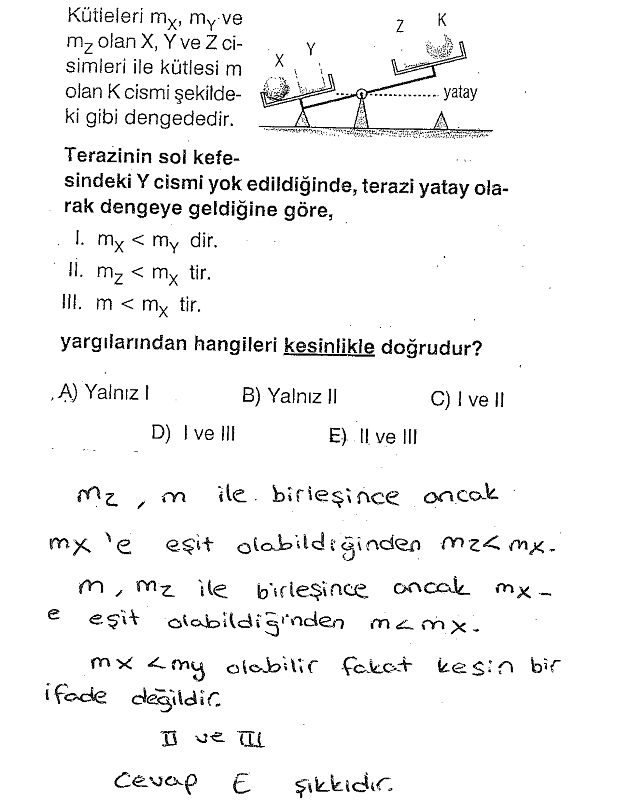 Kütleleri mX, mY ve
mZ olan X, Y ve Z ci-
simleri ile kütlesi m
olan K cismi şekilde-
ki gibi dengededir.
X
Y
Z
K
yatay
Terazinin sol kefe-
sindeki Y cismi yok edildiğinde, terazi yatay ola-
rak dengeye geldiğine göre,
I. mX < mY dir.
II. mZ < mX tir.
III. m < mX tir.
yargılarından hangileri kesinlikle doğrudur?
A) Yalnız I B) Yalnız II C) I ve II
D) I ve III E) II ve III
mz, m ile birleşince ancak
mx 'e eşit olabildiğinden mz< mx.
m, mz ile birleşince ancak mx-
e eşit olabildiğinden m<mx.
mx <my olabilir fakat kesin bir
ifade değildir.
II ve III
Cevap E şıkkıdır.